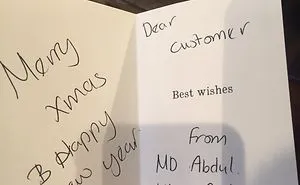 Merry
Xmas
B Happy
New year
Dear
Customer
Best wishes
From
MD Abdul.